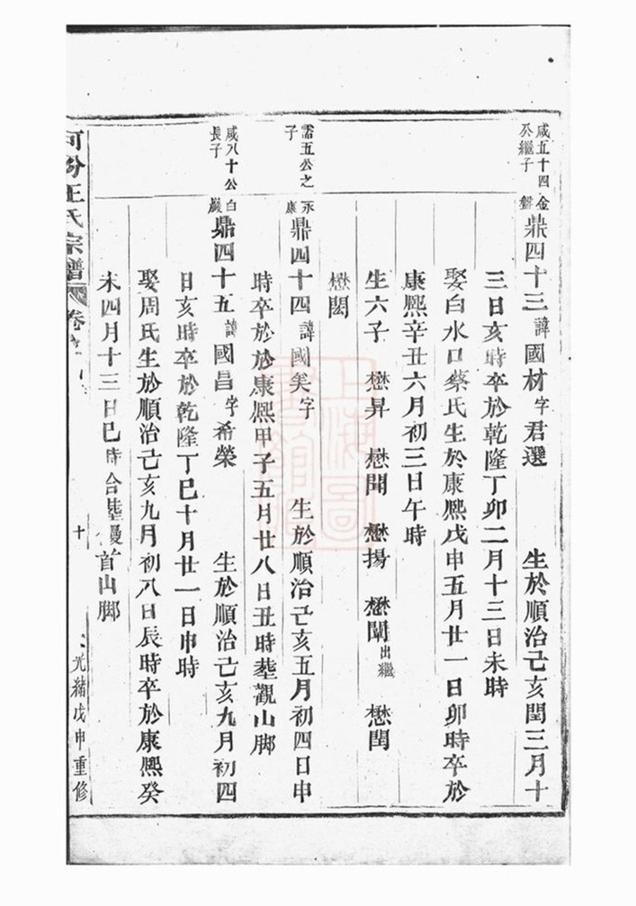 咸五十四金
公繼子聲
鼎四十三諱國材字君選 生於順治己亥閏三月十
三日亥時卒於乾隆丁卯二月十三日未時
娶白水口蔡氏生於康熙戊申五月廿一日卯時卒於
康熙辛丑六月初三日午時
生六子 懋昇 懋聞 懋揚 懋闡出繼 懋閏
懋閎
需五公之永
子康
鼎四十四諱國美字 生於順治己亥五月初四日申
時卒於於康熙甲子五月廿八日丑時塟觀山脚
咸八十公白
長子巖
鼎四十五諱國昌字希榮 生於順治己亥九月初四
日亥時卒於乾隆丁巳十月廿一日申時
娶周氏生於順治己亥九月初八日辰時卒於康熙癸
未四月十三日巳時合塟饅首山脚
河汾王氏宗譜 卷 十 光緒戊申重修
上海圖書館藏